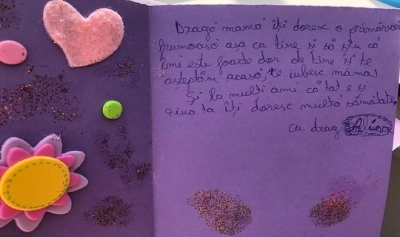 Dragă mamă îți doresc o primăvară
frumoasă așa ca tine și să știi că
îmi este foarte dor de tine și te
aștептăm acasă, te iubesc mama!
Și la mulți ani că tot e și
ziua ta îți doresc multă sănătate
cu drag